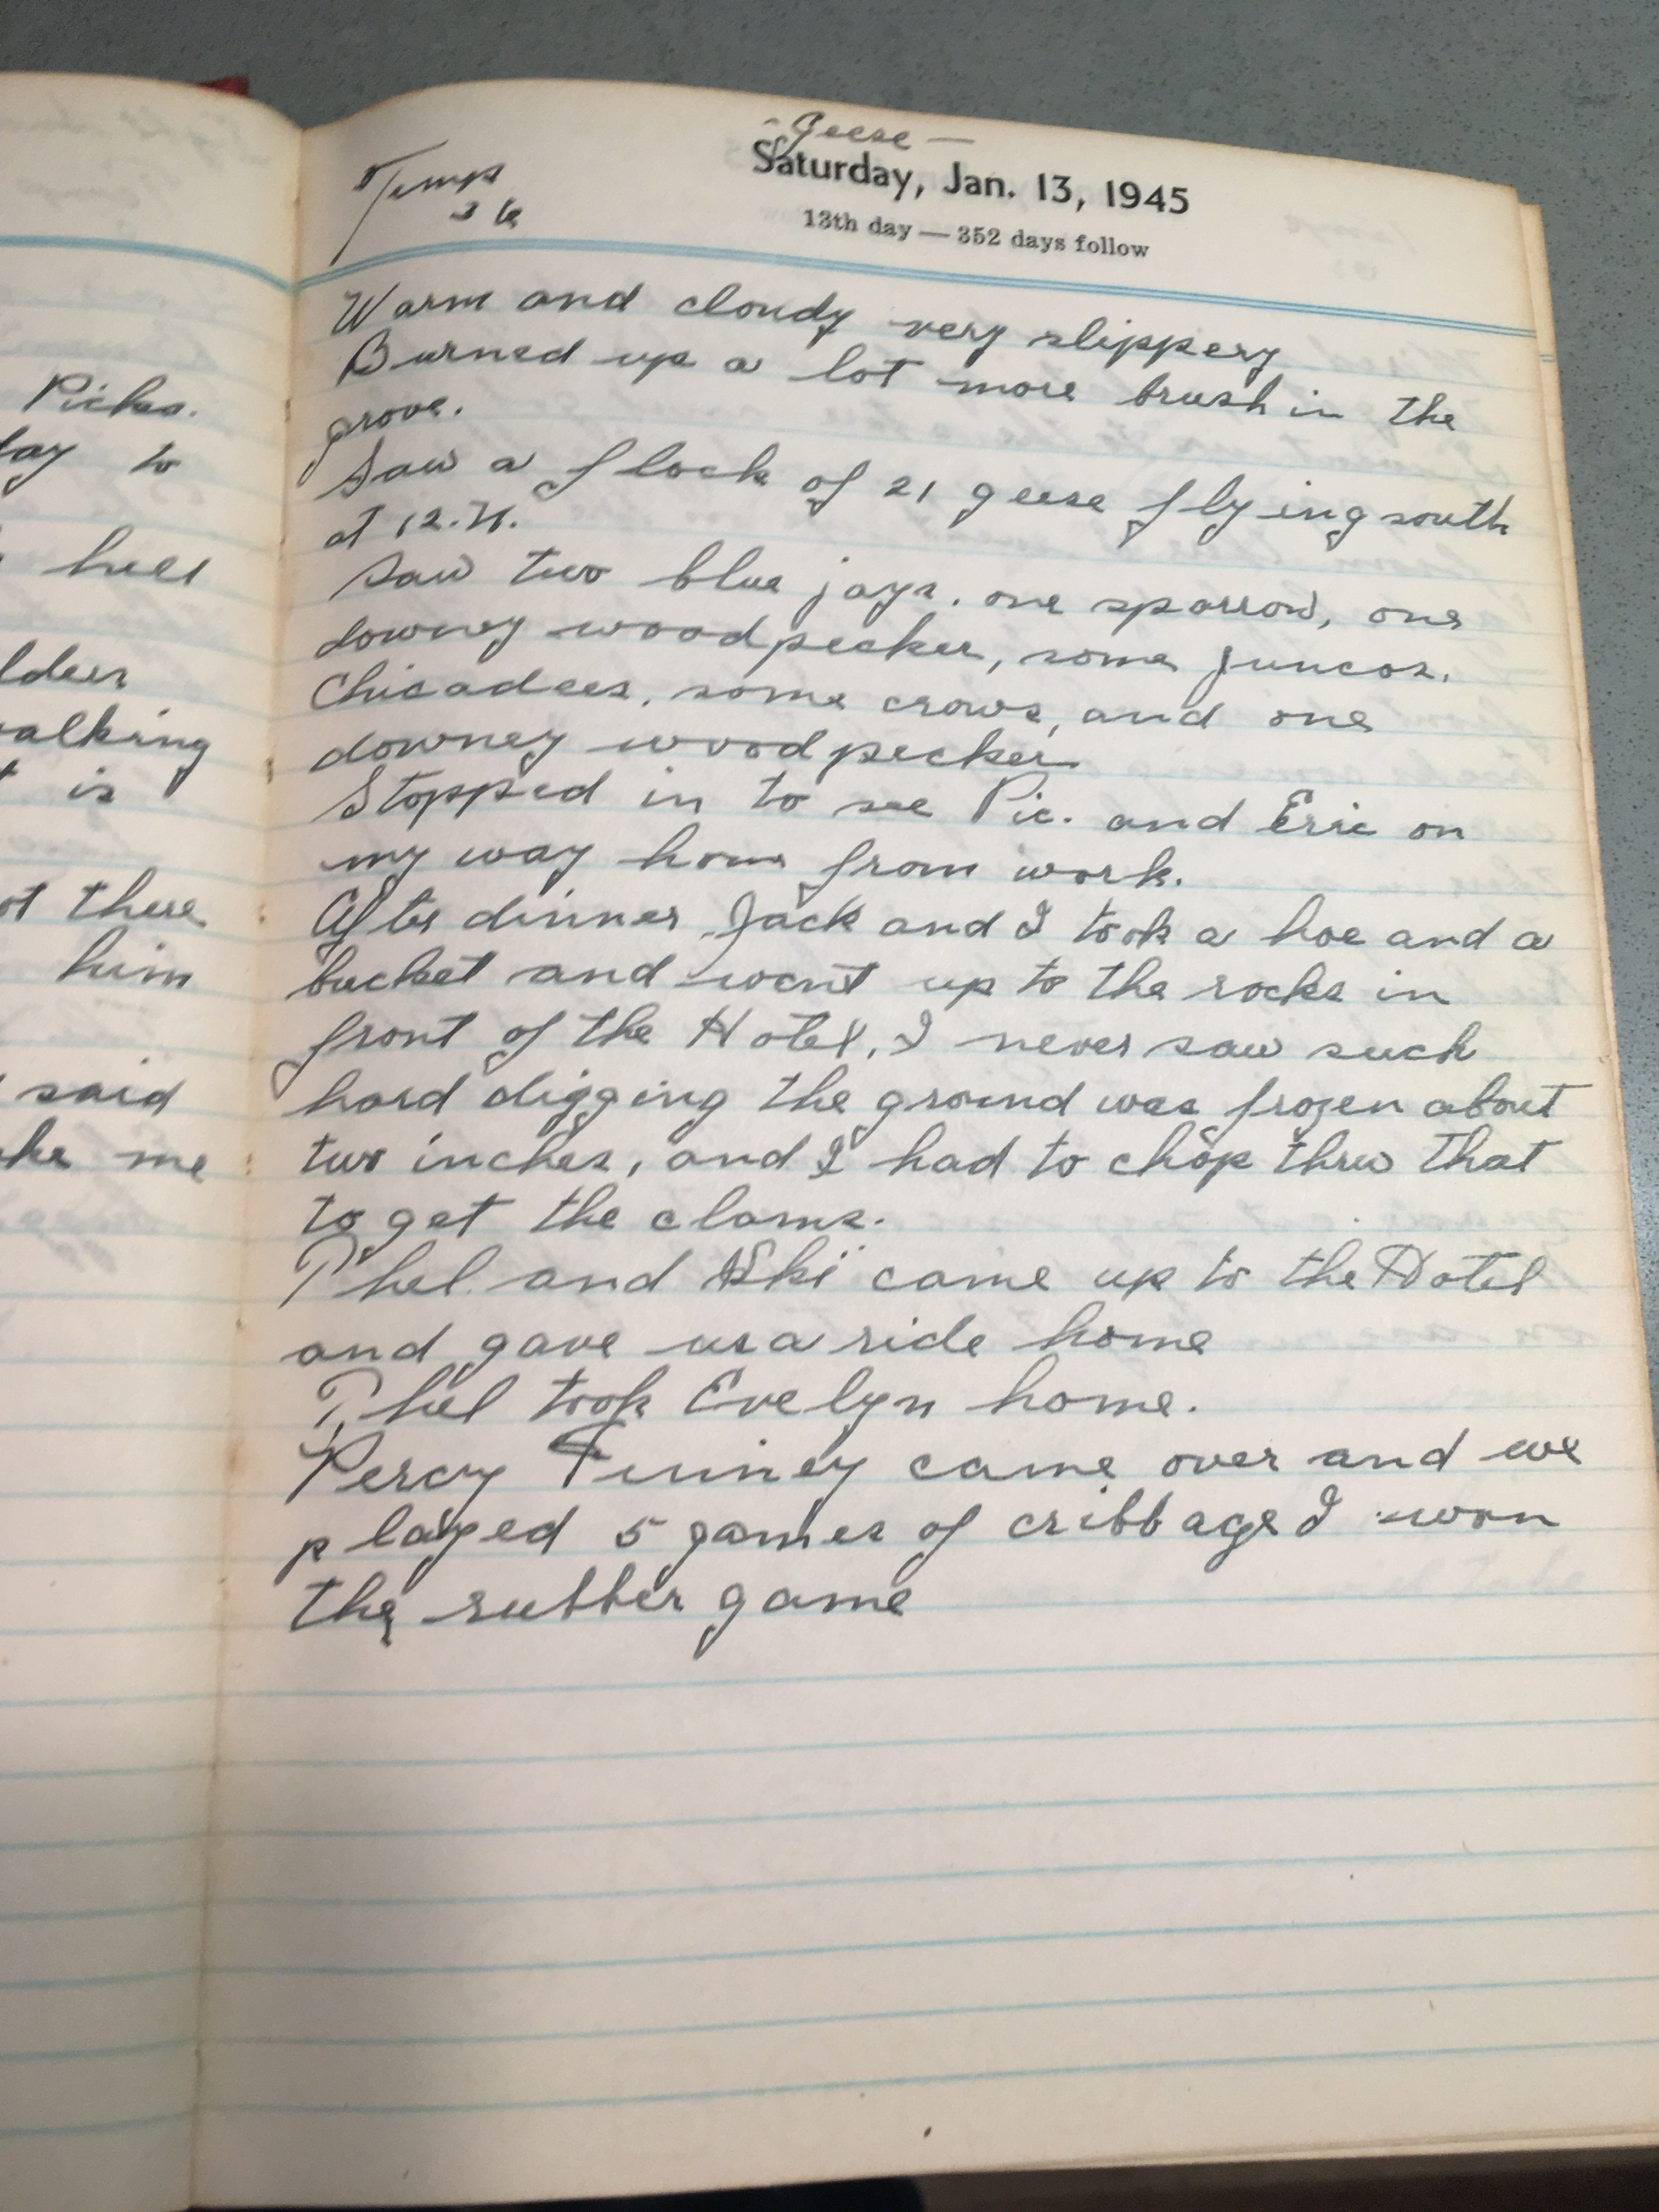 Picks.
day to
hill
walking
is
ot there
him
said
me
- Geese -
Temp
36
Saturday, Jan. 13, 1945
13th day — 352 days follow
Warm and cloudy very slippery
Burned up a lot more brush in the
grove.
Saw a flock of 21 geese flying south
at 12.N.
Saw two blue jays. one sparrow, one
downey woodpecker, some juncos.
Chicadees. some crows, and one
downey woodpecker
Stopped in to see Pic. and Eric on
my way home from work.
After dinner Jack and I took a hoe and a
bucket and went up to the rocks in
front of the Hotel. I never saw such
hard digging the ground was frozen about
two inches, and I had to chop thru that
to get the clams.
Phel. and Ski came up to the Hotel
and gave us a ride home
Phel took Evelyn home.
Percy came over and we
played 5 games of cribbage I won
the rubber game